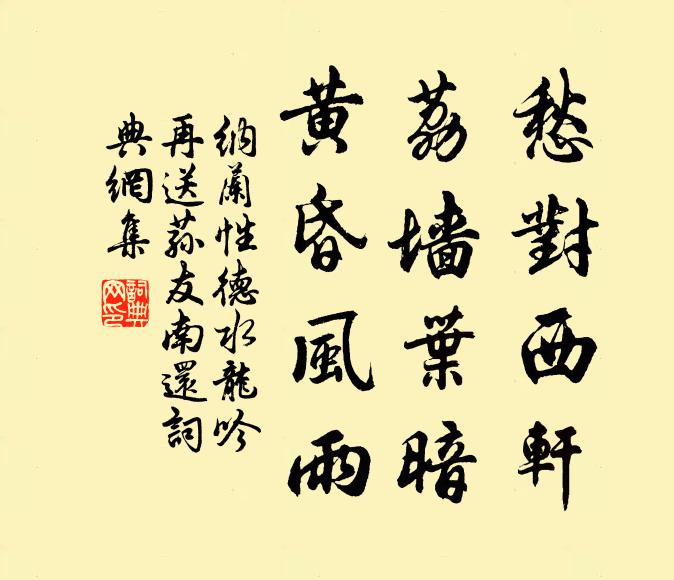 愁對西軒
荔墙葉暗
黄昏風雨
納蘭性德水龍吟
再送蓀友南還詞
典網集
詞典網印